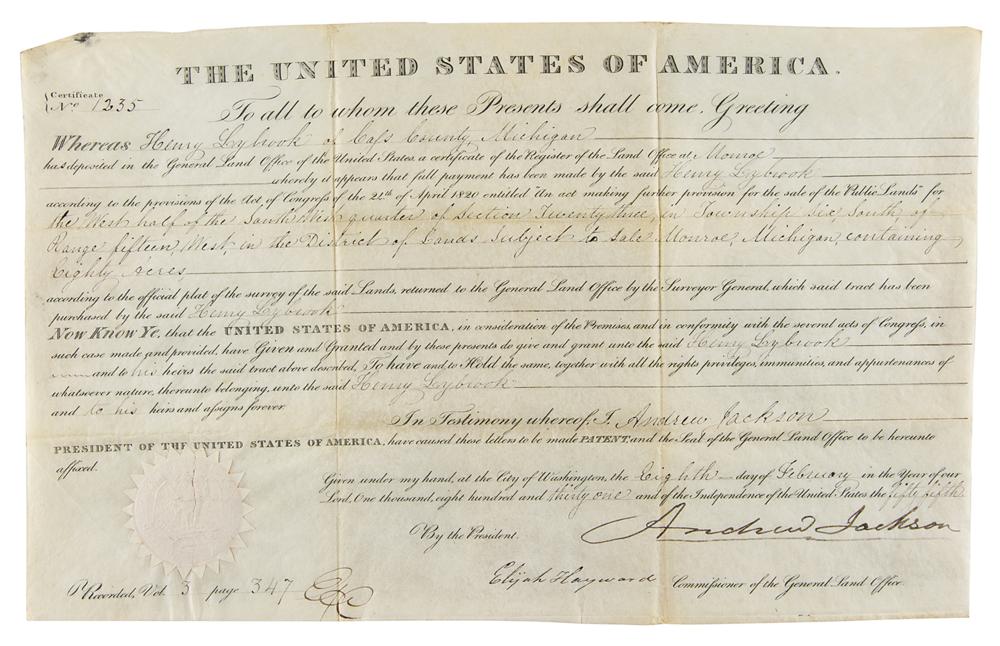 THE UNITED STATES OF AMERICA.
Certificate
No 1235
To all to whom these Presents shall come, Greeting
Whereas Henry Lybrook of Cass County, Michigan
has deposited in the General Land Office of the United States, a certificate of the Register of the Land Office at Monroe
whereby it appears that full payment has been made by the said Henry Lybrook
according to the provisions of the Act of Congress of the 24th of April 1820 entitled An act making further provision for the sale of the Public Lands for
the West half of the South West quarter of Section Twenty three, in Township Six South, of
Range fifteen, West, in the District of Lands Subject to Sale Monroe, Michigan, containing
Eighty Acres
according to the official plat of the survey of the said Lands, returned to the General Land Office by the Surveyor General, which said tract has been
purchased by the said Henry Lybrook
Now Know Ye, that the UNITED STATES OF AMERICA, in consideration of the Premises, and in conformity with the several acts of Congress, in
such case made and provided, have Given and Granted and by these presents do give and grant unto the said Henry Lybrook
and to his heirs the said tract above described, To have and to Hold the same, together with all the rights privileges, immunities, and appurtenances of
whatsoever nature, thereunto belonging, unto the said Henry Lybrook
and to his heirs and assigns forever.
In Testimony whereof, I, Andrew Jackson
PRESIDENT OF THE UNITED STATES OF AMERICA, have caused these letters to be made PATENT, and the Seal of the General Land Office to be hereunto
affixed.
Given under my hand, at the City of Washington, the Eighth day of February in the Year of our
Lord, One thousand, eight hundred and thirty one and of the Independence of the United States the fifty fifth
Andrew Jackson
By the President.
Elijah Hayward Commissioner of the General Land Office.
Recorded, Vol. 3 page 347